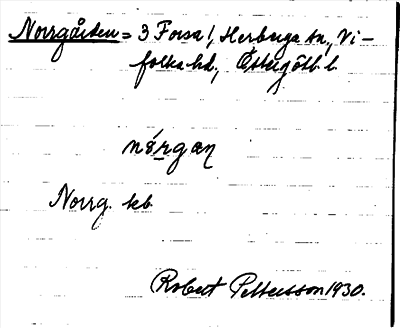 Norrgården = 3 Forsa!, Herberga sn, Vi-
folka hd, Östergötl. l.
nórgan
Norrg. kb
Robert Pettersson 1930.